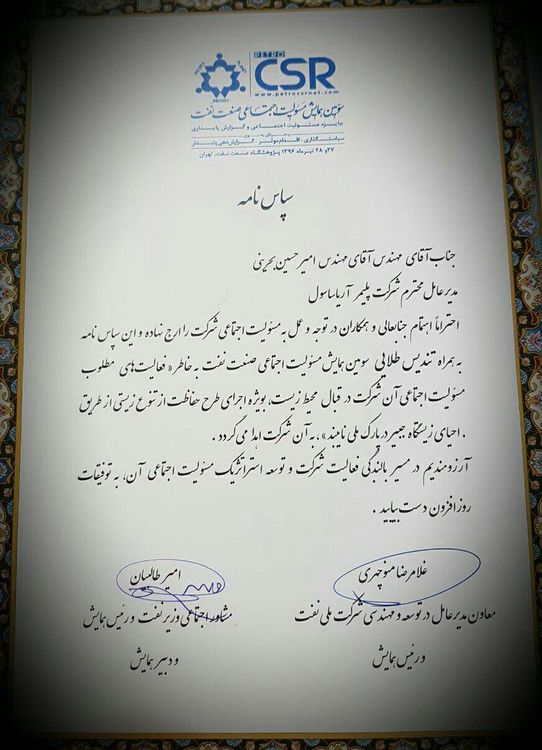 PETRO
CSR
www.petrocsrnet.com
سومین همایش مسئولیت اجتماعی صنعت نفت
جایزه مسئولیت اجتماعی و گزارش پایداری
سیاستگذاری، اقدام موثر، گزارش‌دهی پایدار
۲۷ و ۲۸ تیر ماه ۱۳۹۶ پژوهشگاه صنعت نفت، تهران
سپاس نامه
جناب آقای مهندس آقای مهندس امیرحسین بحرینی
مدیرعامل محترم شرکت پلیمر آریاساسول
احتراماً اهتمام جنابعالی و همکاران در توجه و عمل به مسئولیت اجتماعی شرکت را ارج نهاده و این سپاس نامه
به همراه تندیس طلایی سومین همایش مسئولیت اجتماعی صنعت نفت به خاطر « فعالیت‌های مطلوب
مسئولیت اجتماعی آن شرکت در قبال محیط زیست، بویژه اجرای طرح حفاظت از تنوع زیستی از طریق
احیای زیستگاه جبیر در پارک ملی نایبند »، به آن شرکت اهدا می گردد .
آرزومندیم در مسیر بالندگی فعالیت شرکت و توسعه استراتژیک مسئولیت اجتماعی آن، به توفیقات
روزافزون دست بیابید .
غلامرضا منوچهری
معاون مدیرعامل در توسعه و مهندسی شرکت ملی نفت
و رئیس همایش
امیر طالبیان
مشاور اجتماعی وزیر نفت و رئیس همایش
و دبیر همایش